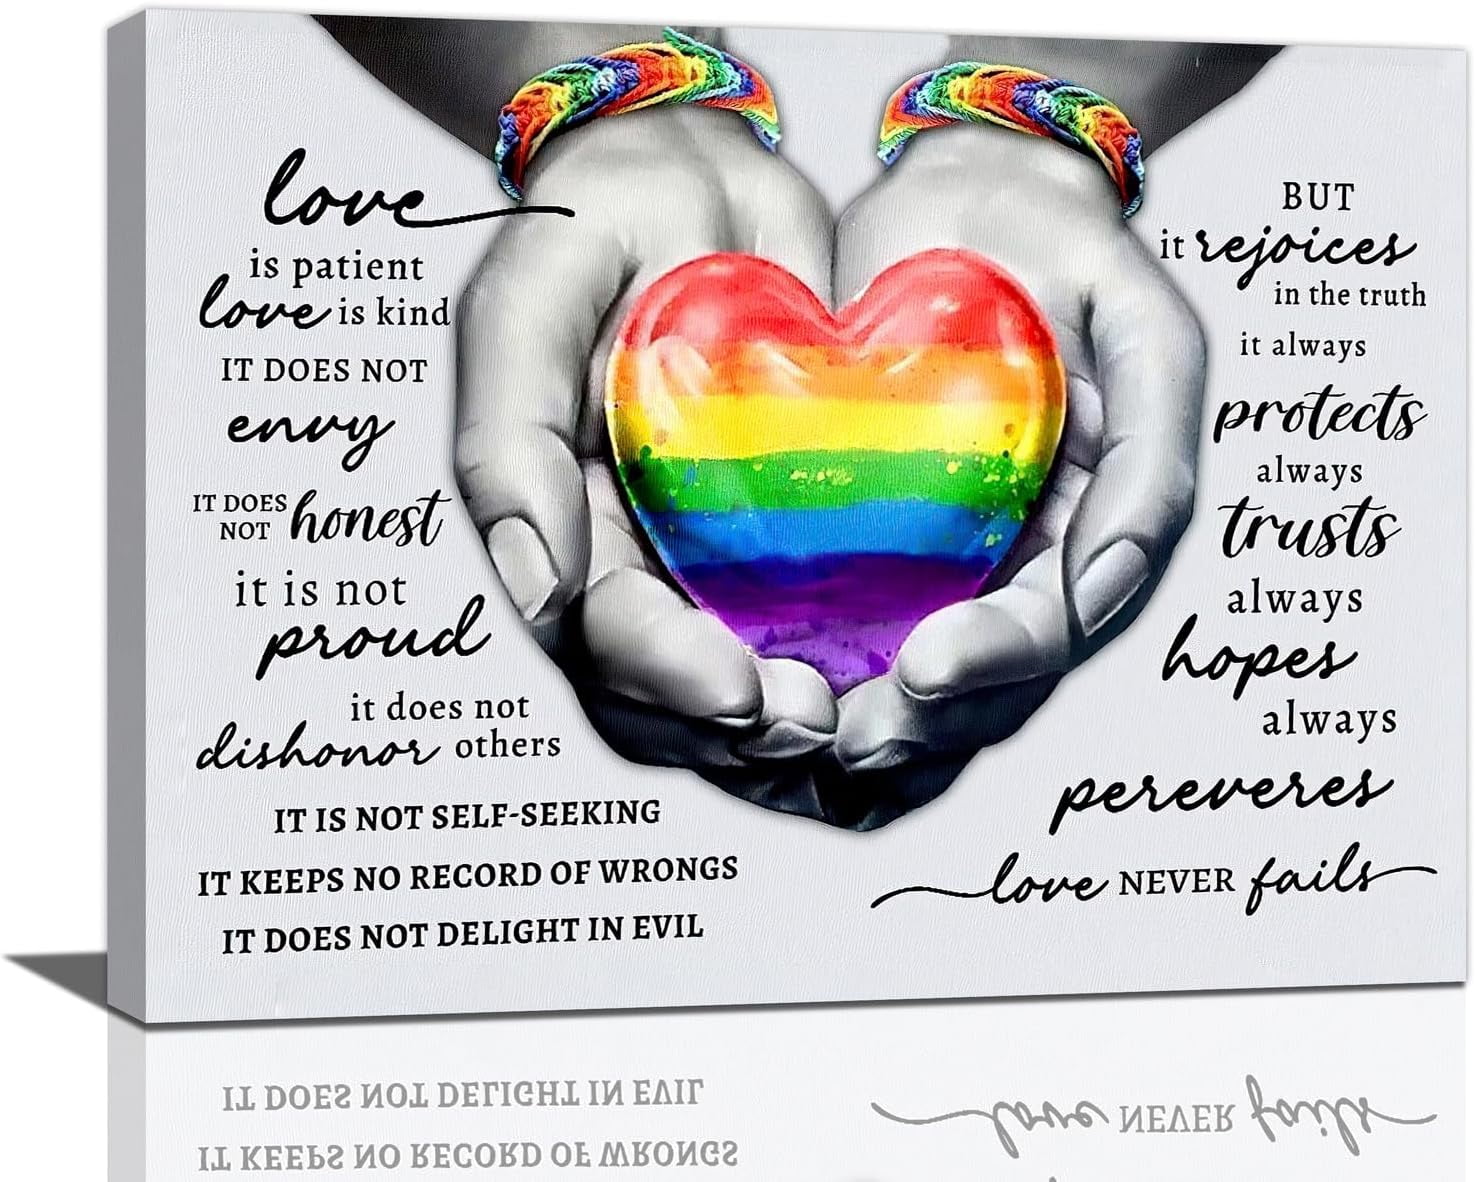 love
is patient
love is kind
IT DOES NOT
envy
IT DOES
NOT honest
it is not
proud
it does not
dishonor others
IT IS NOT SELF-SEEKING
IT KEEPS NO RECORD OF WRONGS
IT DOES NOT DELIGHT IN EVIL
BUT
it rejoices
in the truth
it always
protects
always
trusts
always
hopes
always
pereveres
love NEVER fails
IT DOES NOT DELIGHT IN EVIL
love NEVER fails
IT KEEPS NO RECORD OF WRONGS